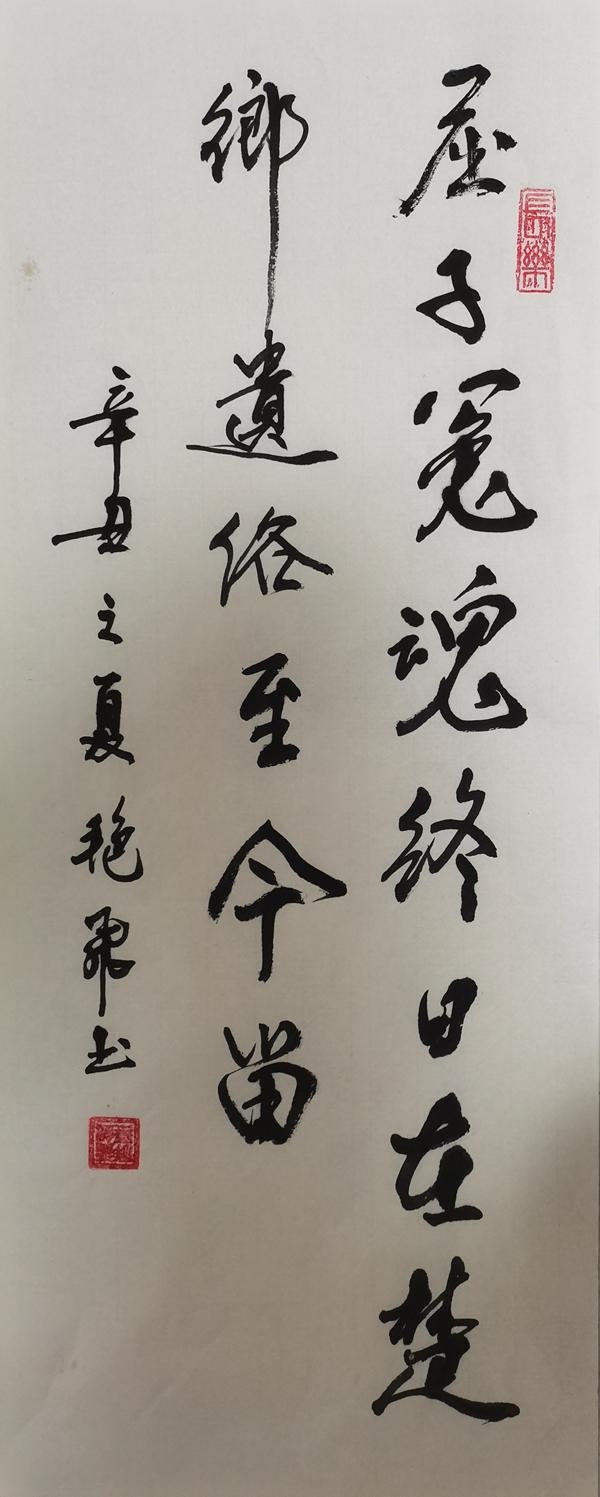 屈子冤魂终日在楚
鄉遺俗至今留
辛丑之夏艳飛书
長樂